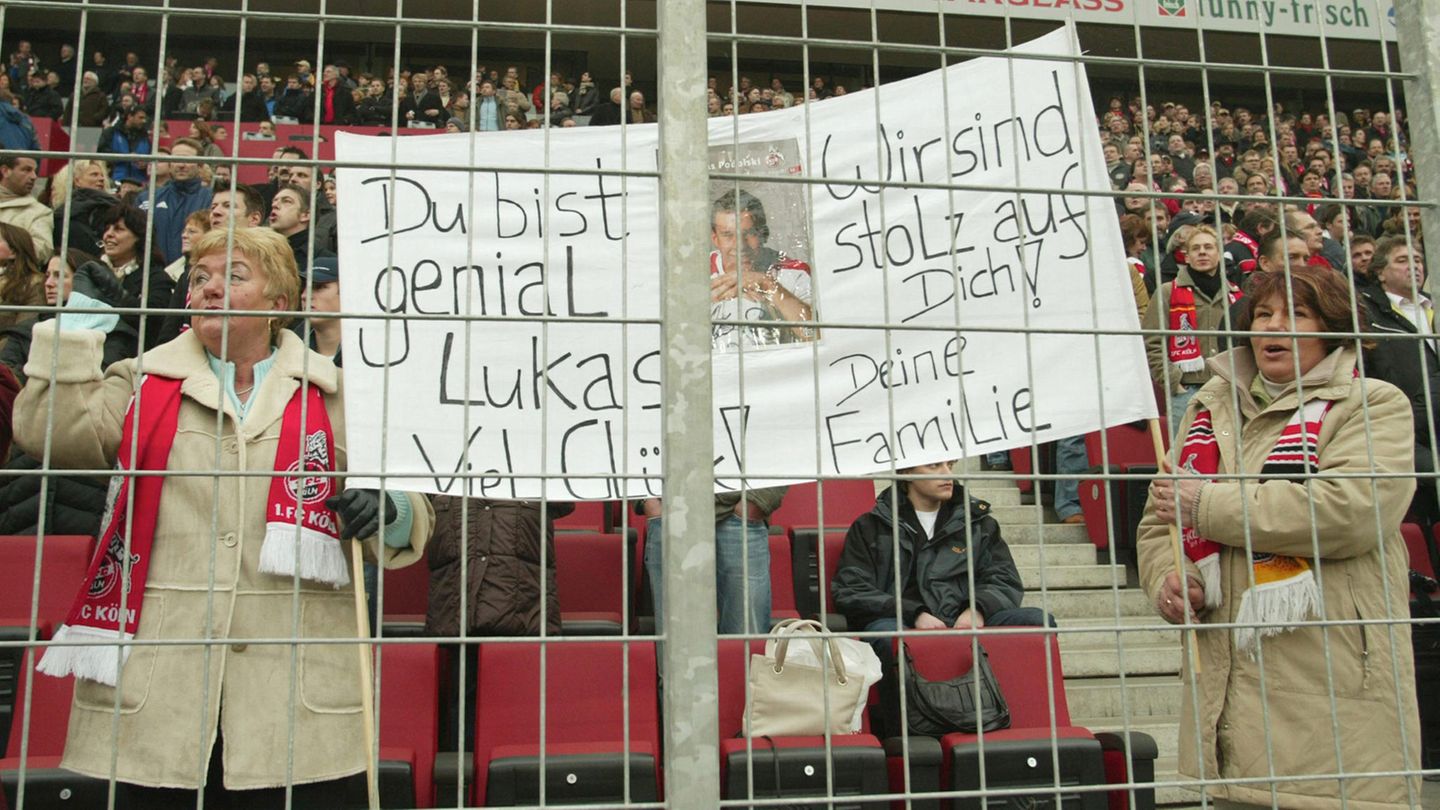 funny-frisch
Du bist
genial
Lukas
Viel Glück!
Podolski
Wir sind
stolz auf
Dich!
Deine
Familie
1.FC KÖLN
FC KÖLN
1.FC KÖLN